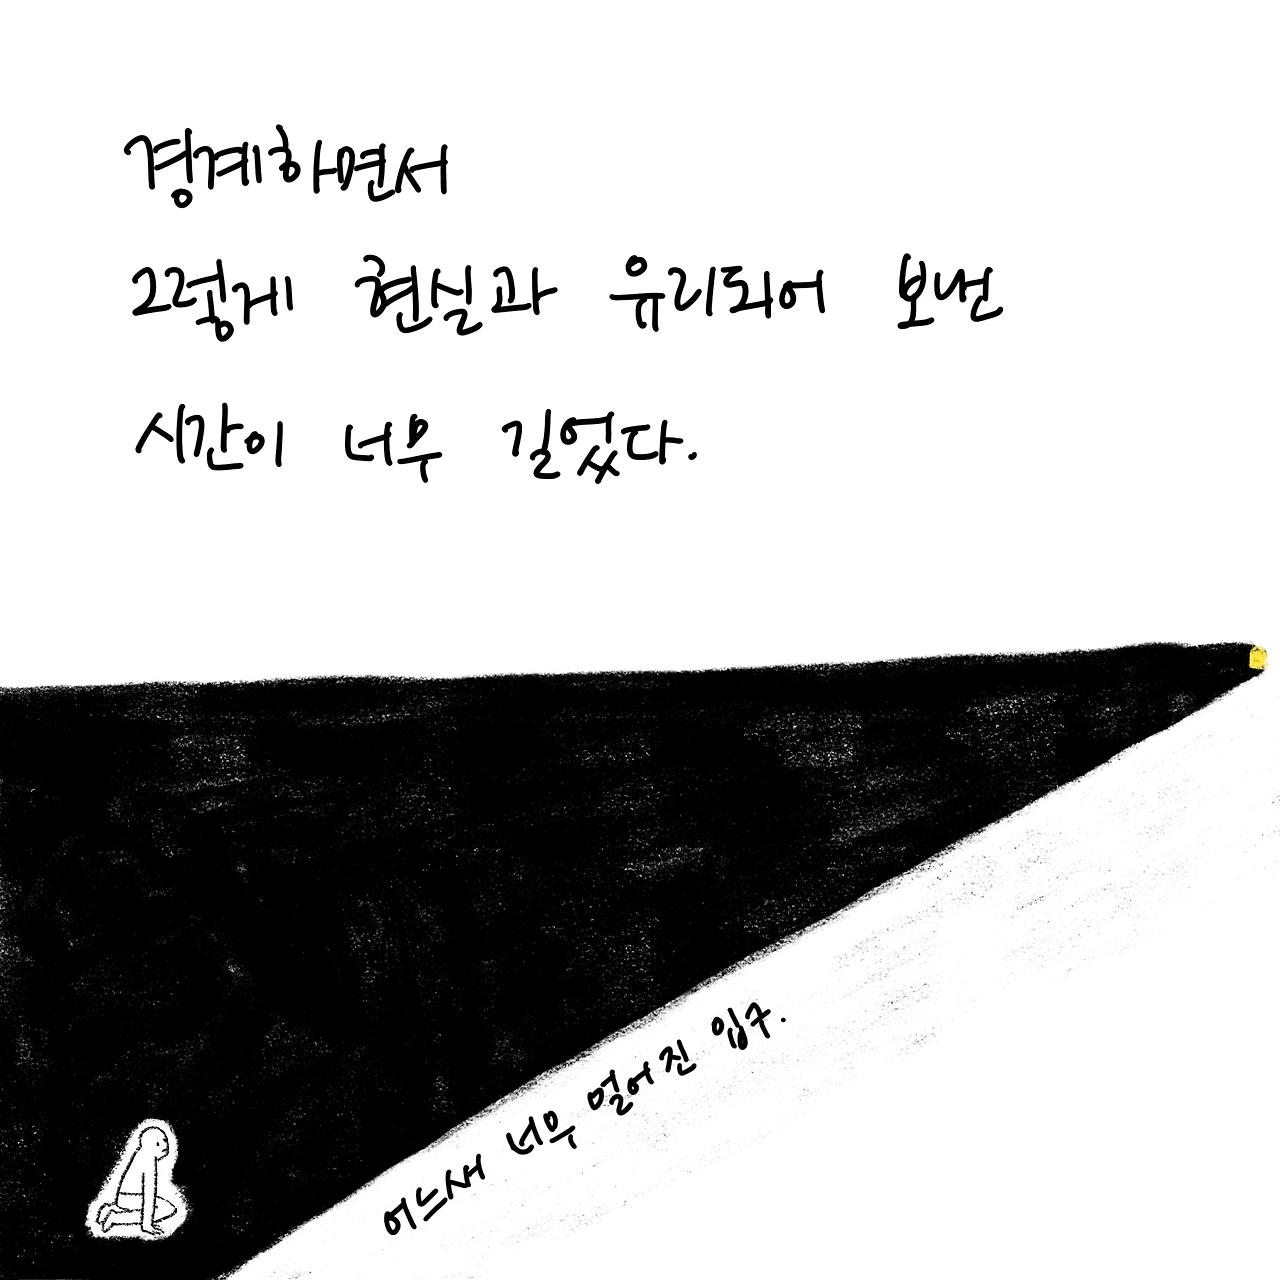 경계하면서
그렇게 현실과 유리되어 보낸
시간이 너무 길었다.
어느새 너무 멀어진 입구.